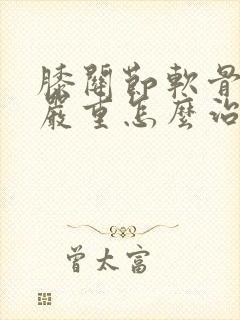 膝關節軟骨
嚴重怎麼治
曾太富